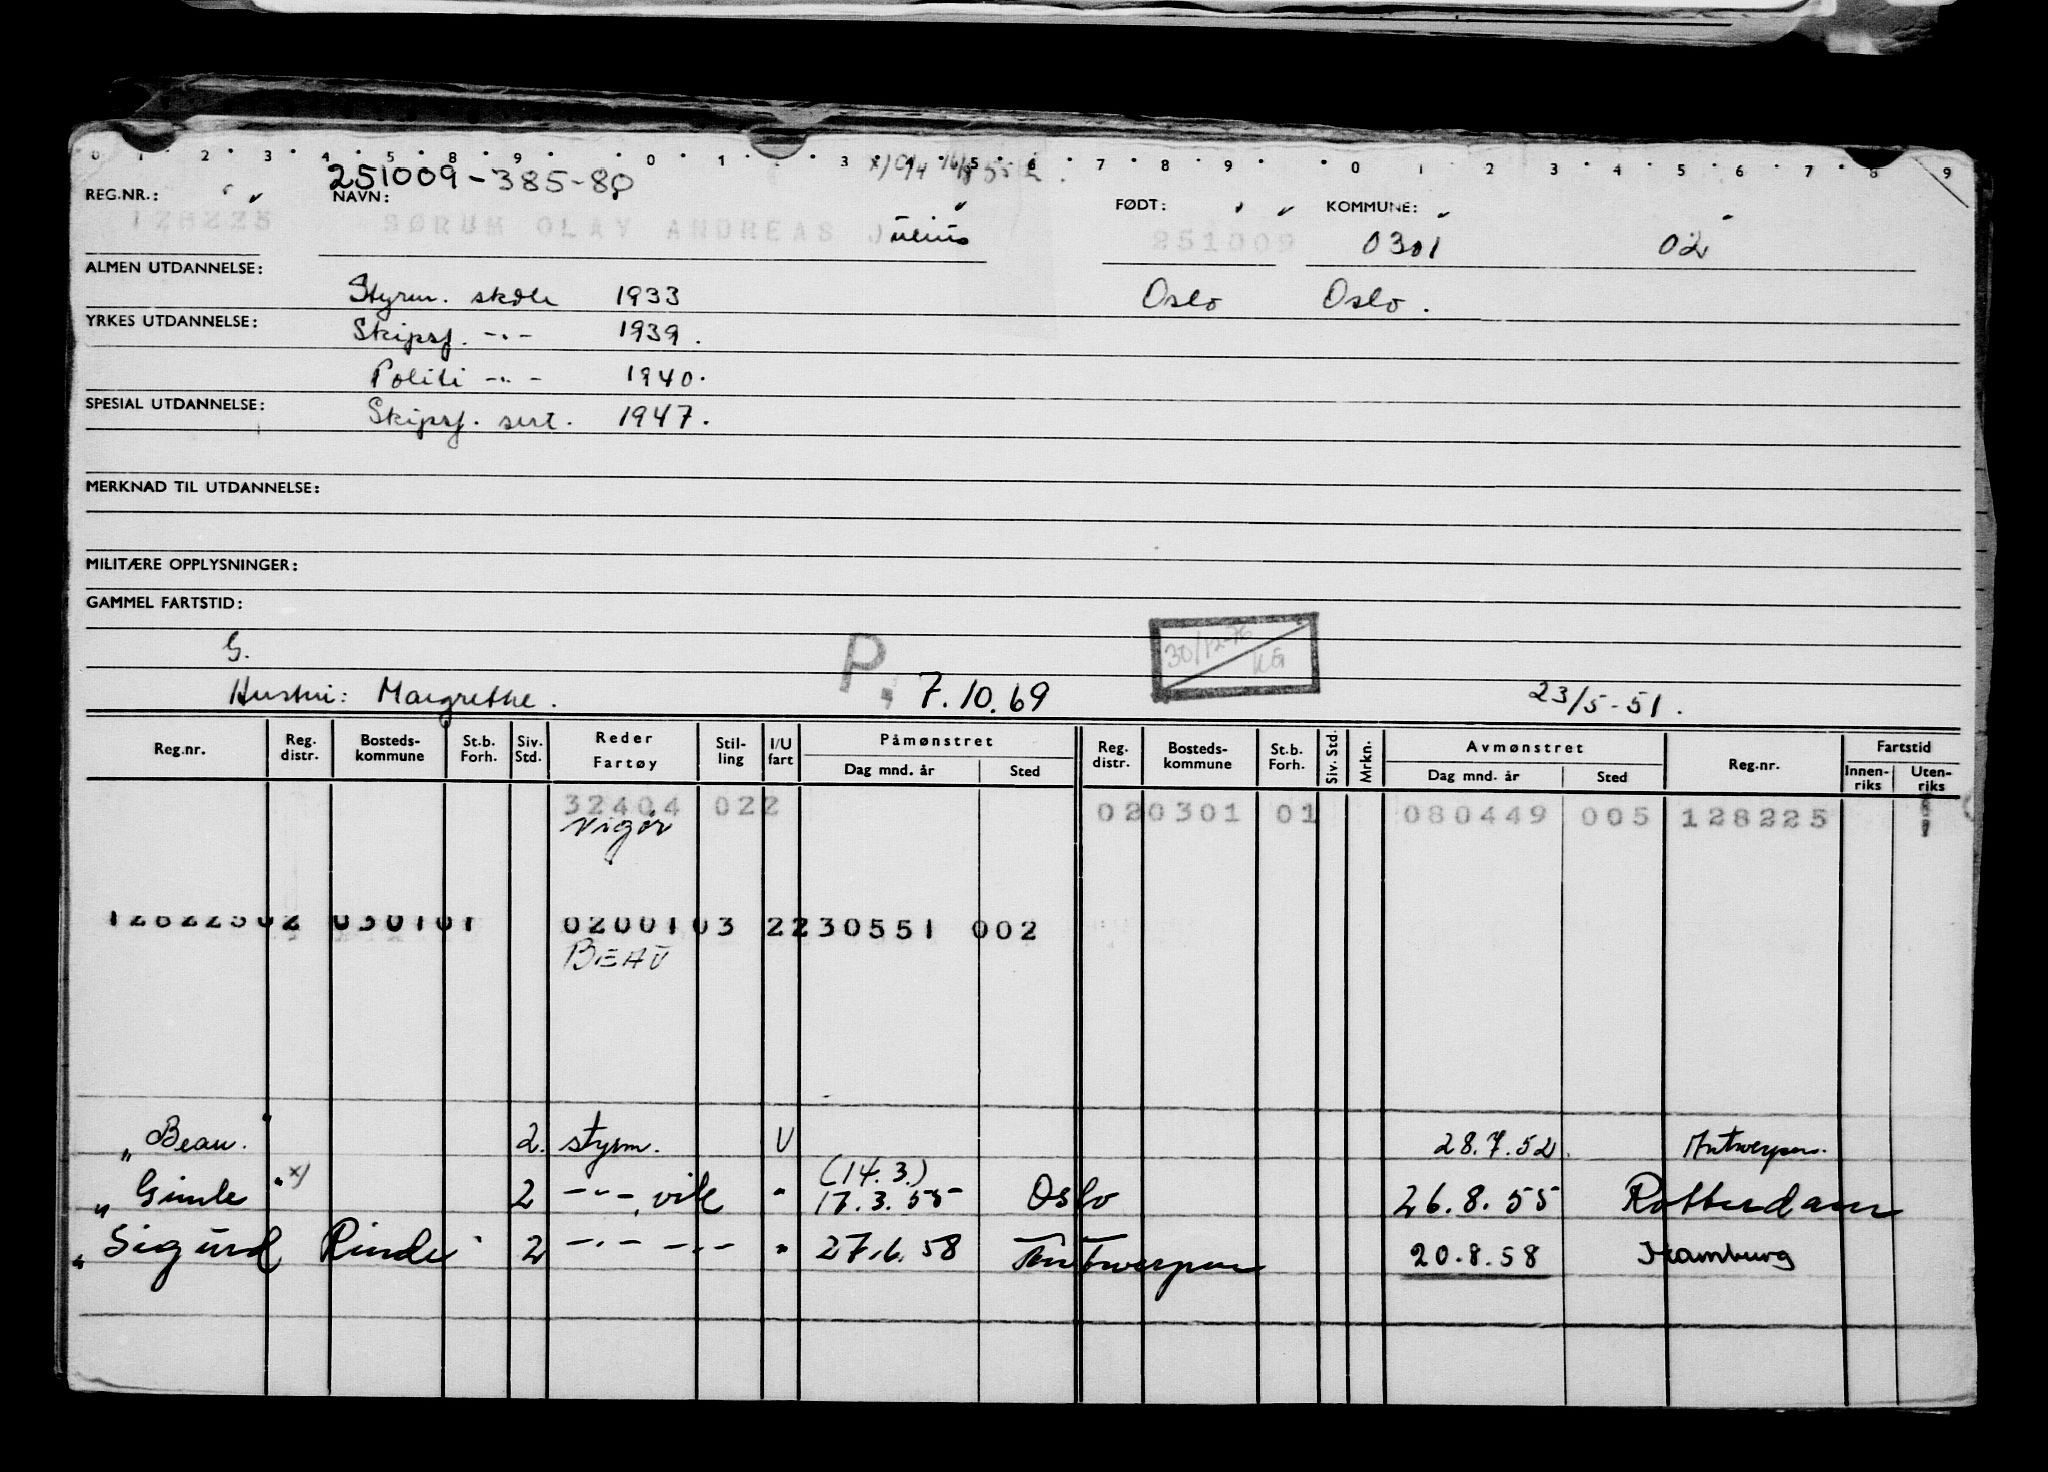 0 1 2 3 4 5 8 9 0 1 3 4 5 6 7 8 9 0 1 2 3 4 5 6 7 8 9
251009-385-80
REG.NR.: NAVN: FØDT: KOMMUNE:
128225 SØRUM OLAV ANDREAS Julius 251009 0301 02
ALMEN UTDANNELSE:
Styrm. skole 1933 Oslo Oslo.
YRKES UTDANNELSE:
Skipsf. -"- 1939.
Politi -"- 1940.
SPESIAL UTDANNELSE:
Skipsf. sert. 1947.
MERKNAD TIL UTDANNELSE:
MILITÆRE OPPLYSNINGER:
GAMMEL FARTSTID:
G. P. 30/12-76 KG
Hustru: Margrethe. 7.10.69 23/5-51.
Reg.nr. Reg. distr. Bosteds-kommune St.b. Forh. Siv. Std. Reder Fartøy Stil-ling I/U fart Påmønstret Reg. distr. Bosteds-kommune St.b. Forh. Siv. Std. Mrkn. Avmønstret Reg.nr. Fartstid
Dag mnd. år Sted Dag mnd. år Sted Innen-riks Uten-riks
32404 022 020301 01 080449 005 128225
Vigør
12822502 030101 0200103 2230551 002
BEAU
"Beau." 2. styrm. U 28.7.52. Antwerpen.
(14.3.)
"Gimle" x) 2 -"-, vik " 17.3.55 Oslo 26.8.55 Rotterdam
"Sigurd Rinde" 2 -"- -"- " 27.6.58 Antwerpen 20.8.58 Hamburg